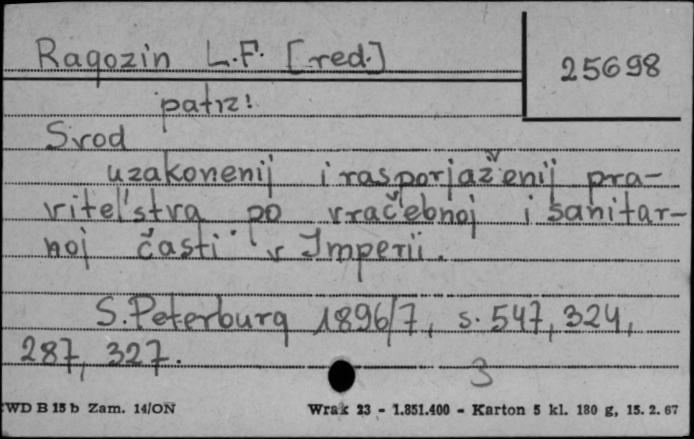 Ragozin L.F. [red.]
25698
patrz!
Svod
uzakonenij i rasporjaženij pra-
vitel'stva po vračebnoj i sanitar-
noj časti v Imperii.
S. Peterburg 1896/7, s. 547, 324,
287, 327.
3
WD B 15 b Zam. 14/ON Wrak 23 - 1.851.400 - Karton 5 kl. 180 g, 15. 2. 67